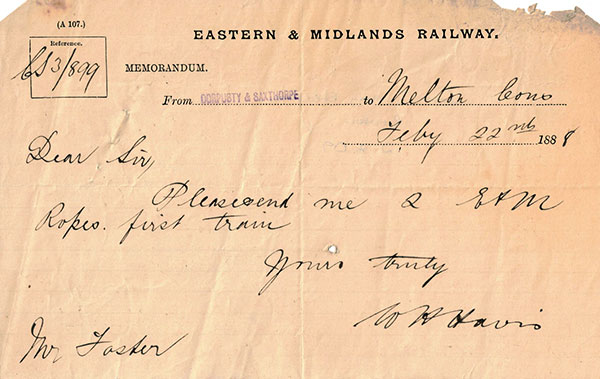 (A 107.)
EASTERN & MIDLANDS RAILWAY.
Reference.
CS3/899
MEMORANDUM.
From CORPUSTY & SAXTHORPE to Melton Cons
Feby 22nd 1888
Dear Sir,
Please send me 2 E&M
Ropes. first train
Yours truly
W H Havis
Mr Foster